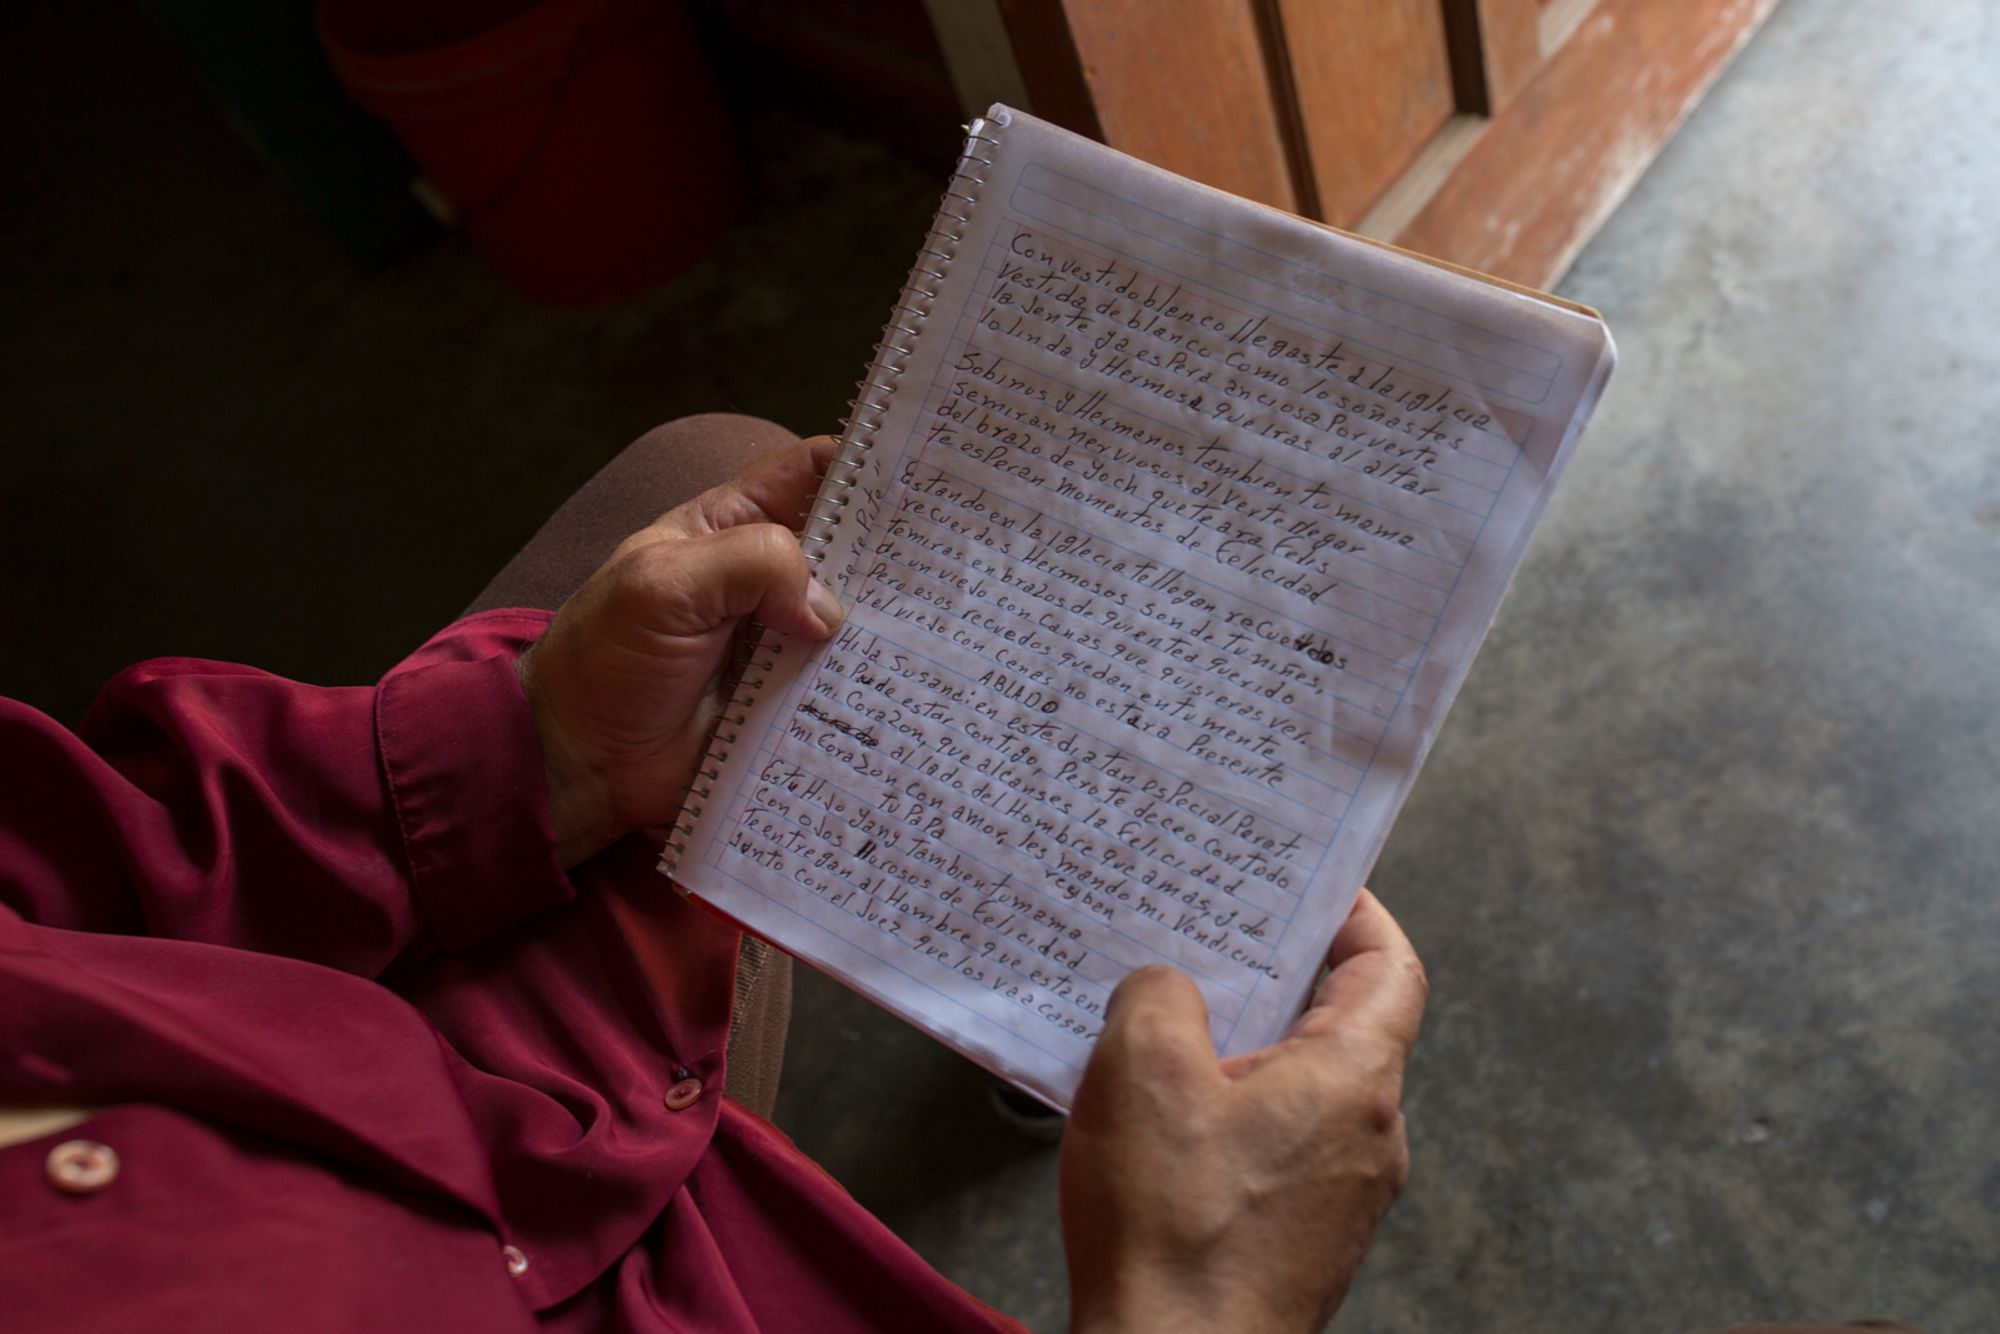 Con vestido blenco llegaste a la iglecia
vestida de blanco como lo soñastes
la Jente ya espera anciosa por verte
lo linda y Hermosa que iras al altar
Sobinos y Hermanos tambien tu mama
se miran nerviosos al verte llegar
del brazo de yoch que te ara felis
te esperan momentos de felicidad
"se repite"
Estando en la iglecia te llegan recuerdos
recuerdos Hermosos son de tu niñes,
te miras en brazos de quien tea querido
de un viejo con canas que quisieras ver.
Pero esos recuedos quedan en tu mente
y el viejo con cenas no estara presente
ABLADO
Hija Susana: en este dia tan especial Para ti
no Puede estar contigo, Pero te deceo con todo
mi Corazon, que alcanses la felicidad
al lado del Hombre que amas, y de
mi Corazon con amor, les mando mi Vendicion.
tu PaPa
reyben
Es tu Hijo yany tambien tu mama
con ojos llurosos de felicided
te entregan al Hombre que esta en
junto con el juez que los va a casar